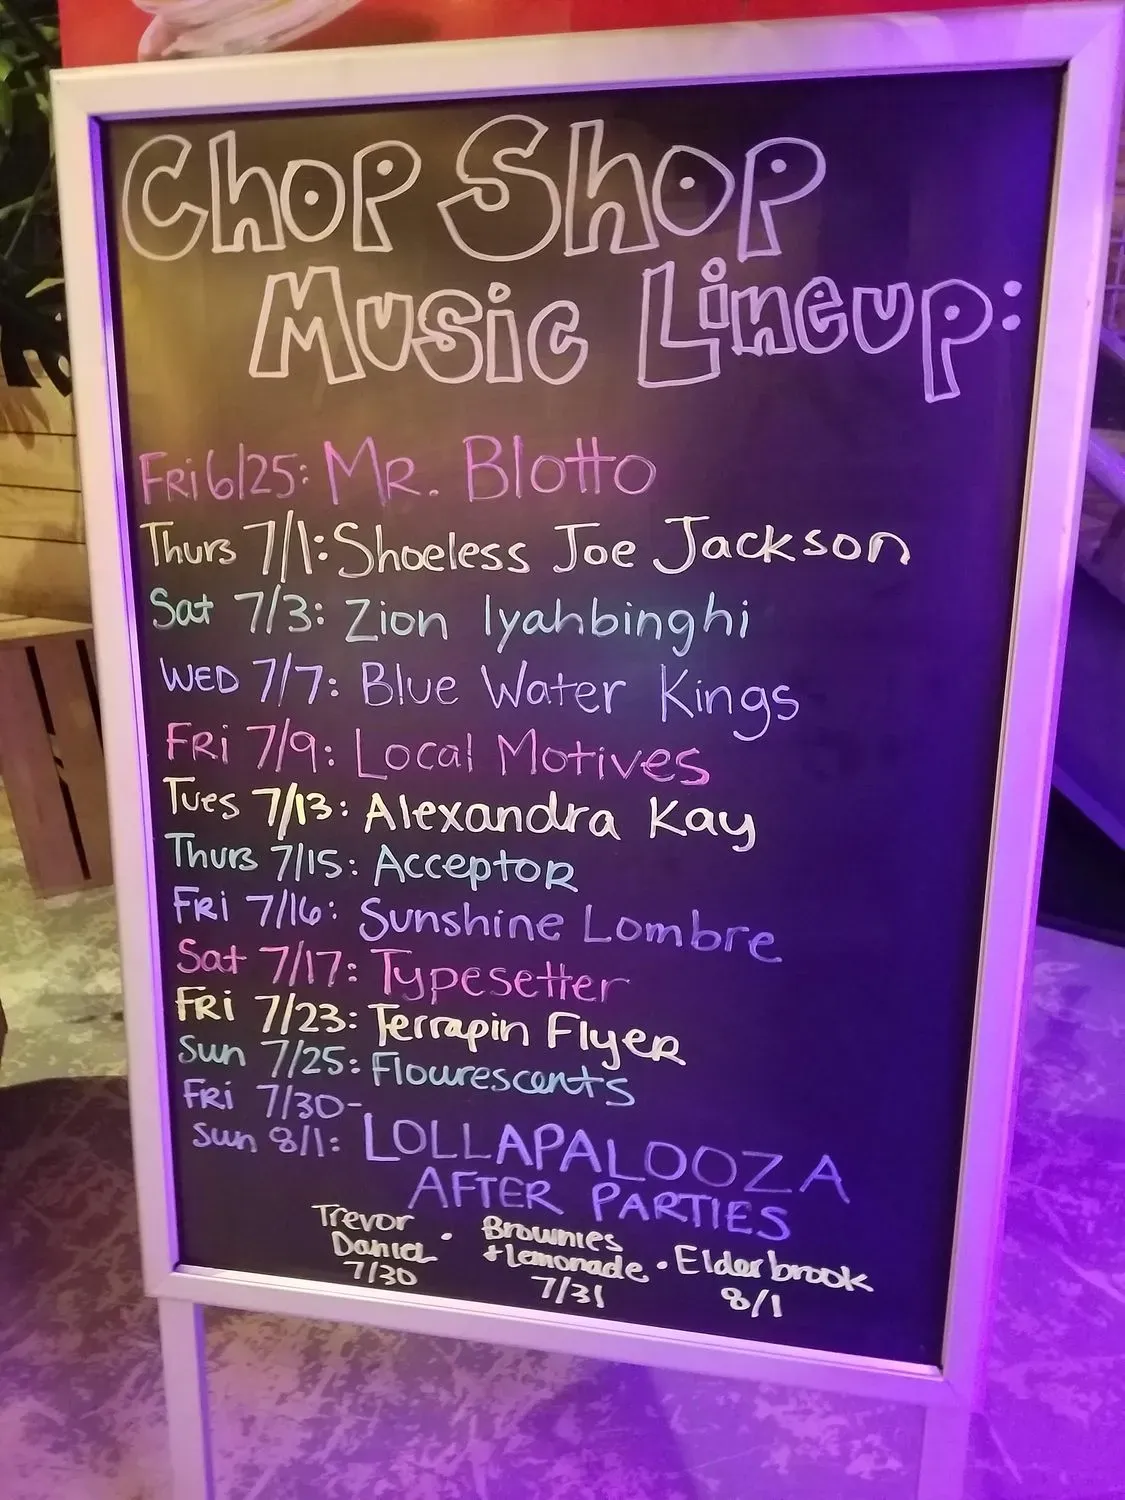 Chop Shop
Music Lineup:
Fri 6/25: Mr. Blotto
Thurs 7/1: Shoeless Joe Jackson
Sat 7/3: Zion Iyahbinghi
WED 7/7: Blue Water Kings
FRi 7/9: Local Motives
Tues 7/13: Alexandra Kay
Thurs 7/15: Acceptor
FRi 7/16: Sunshine Lombre
Sat 7/17: Typesetter
FRi 7/23: Terrapin Flyer
Sun 7/25: Flourescents
FRi 7/30-
Sun 8/1: LOLLAPALOOZA
AFTER PARTIES
Trevor Daniel 7/30 • Brownies + Lemonade 7/31 • Elderbrook 8/1